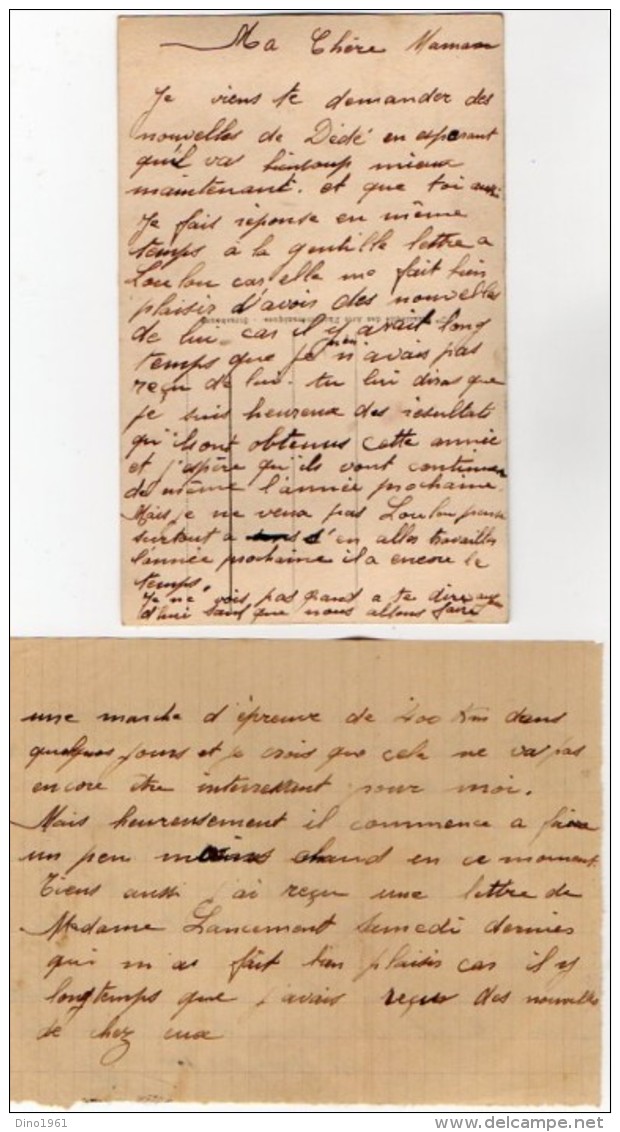 Ma Chère Maman
Je viens te demander des
nouvelles de Dédé en esperant
qu'il vas bientoup mieux
maintenant. et que toi aussi
Je fais réponse en même
temps à la gentille lettre a
Loulou car elle ma fait bien
plaisir d'avoir des nouvelles
de lui car il y avait long
temps que je n'avais pas
reçu de lui. tu lui diras que
je suis heureux des resultats
qu'ils ont obtenus cette année
et j'espère qu'ils vont continuer
de même l'année prochaine.
Mais je ne veux pas Loulou pense
surtout a s'en aller travailler
l'année prochaine il a encore le
temps.
Je ne vois pas grand a te dire aujour
d'hui sauf que nous allons faire
une marche d'épreuve de 200 Km dans
quelques jours et je crois que cela ne vas pas
encore être interressant pour moi.
Mais heureusement il commence a faire
un peu moins chaud en ce moment.
Tiens aussi j'ai reçu une lettre de
Madame Lancement Samedi dernier
qui m'a fait bien plaisir car il y
longtemps que j'avais reçu des nouvelles
de chez eux
Dino1961
www.delcampe.net